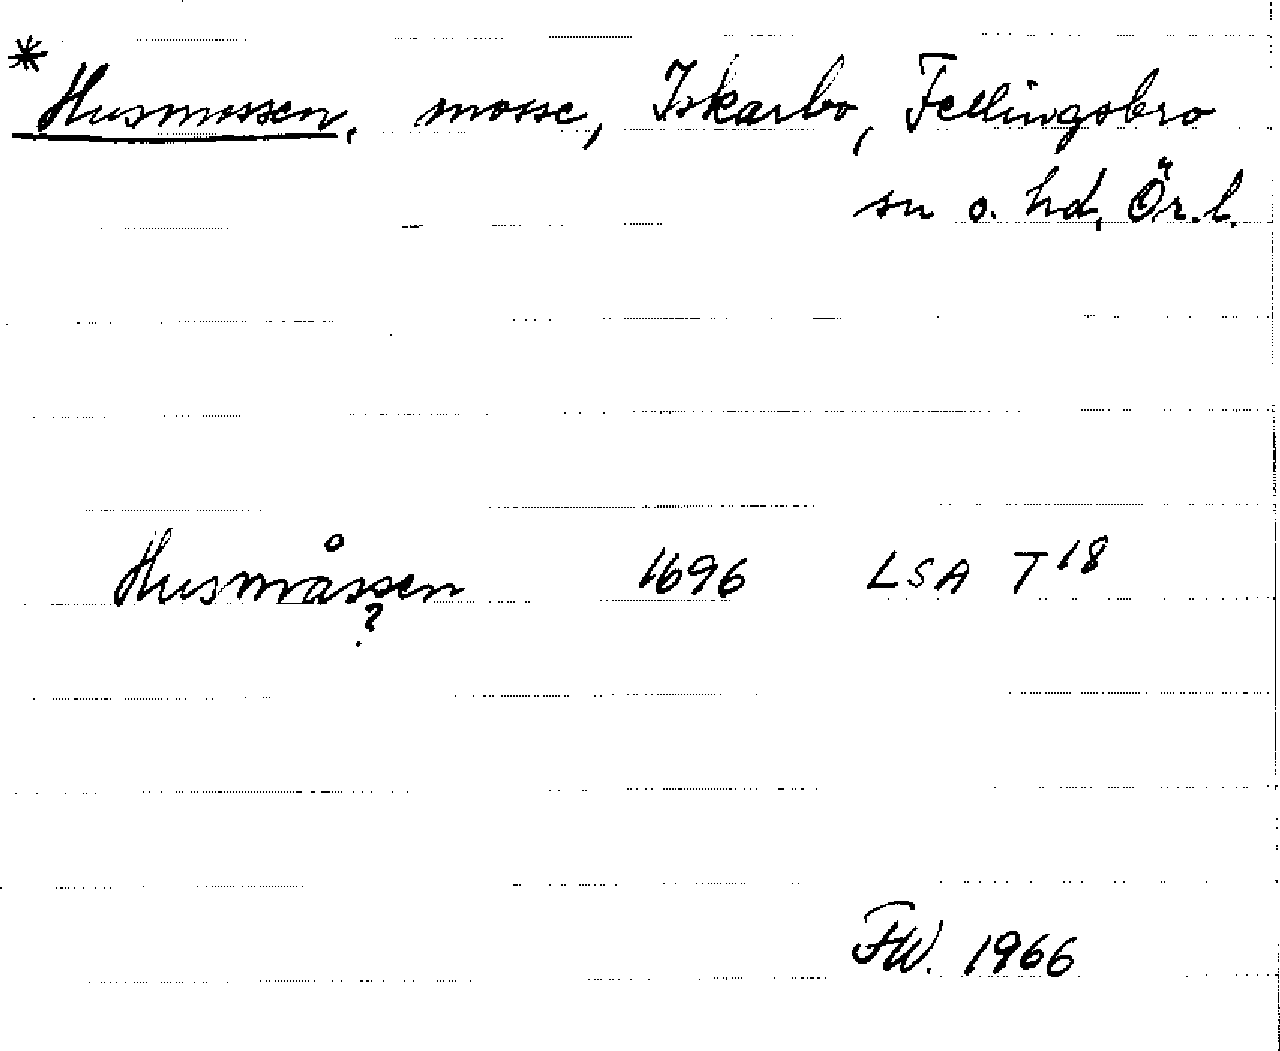 * Husmossen, mosse, Iskarbo, Fellingsbro
sn o. hd, Ör. l.
Husmåssen 1696 LSA T 18
?
FW. 1966